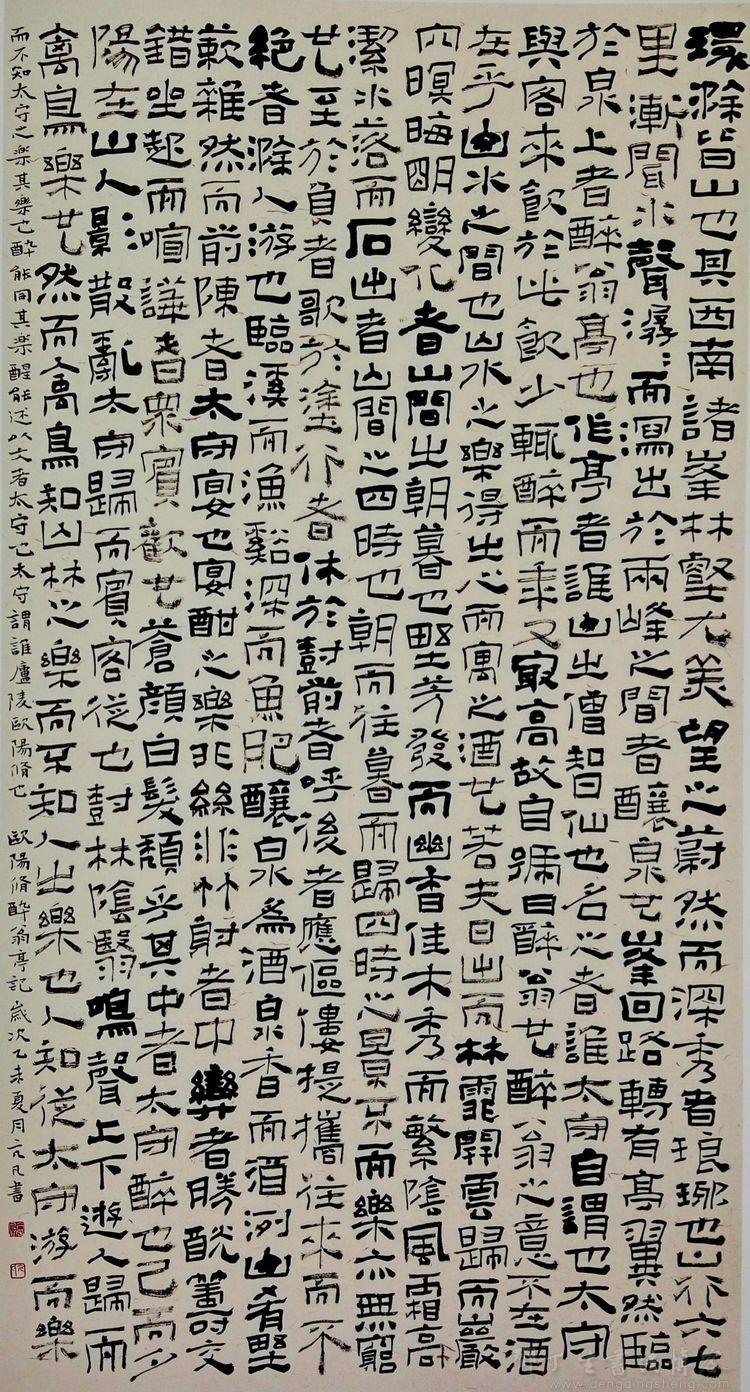 環滁皆山也其西南諸峯林壑尤美望之蔚然而深秀者琅琊也山行六七
里漸聞水聲潺:而瀉出於兩峰之間者釀泉也峯回路轉有亭翼然臨
於泉上者醉翁亭也作亭者誰山之僧智仙也名之者誰太守自謂也太守
與客來飲於此飲少輒醉而年又最高故自號曰醉翁也醉翁之意不在酒
在乎山水之間也山水之樂得之心而寓之酒也若夫日出而林霏開雲歸而巖
穴暝晦明變化者山間之朝暮也野芳發而幽香佳木秀而繁陰風霜高
潔水落而石出者山間之四時也朝而往暮而歸四時之景不而樂亦無窮
也至於負者歌於塗行者休於樹前者呼後者應傴僂提攜往來而不
絕者滁人游也臨溪而漁谿深而魚肥釀泉為酒泉香而酒洌山肴野
蔌雜然而前陳者太守宴也宴酣之樂非絲非竹射者中奕者勝觥籌交
錯坐起而喧譁者眾賓歡也蒼顏白髮頹乎其中者太守醉也已而夕
陽在山人:景散亂太守歸而賓客從也樹林陰翳鳴聲上下遊人歸而
禽鳥樂也然而禽鳥知山林之樂而不知人之樂也人知從太守游而樂
而不知太守之樂其樂也醉能同其樂醒能述以文者太守也太守謂誰廬陵歐陽脩也 歐陽脩醉翁亭記 歲次乙未夏月凡書
www.dengdingsheng.com